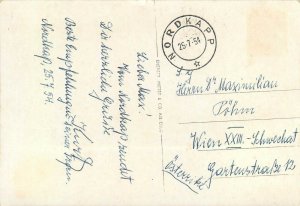 NORDKAPP
25-7 54
Lieber Maxi!
Vom Nordkap sendet
Dir herzliche Grüße
Kurt
Beste Empfehlungen
Nordkap, 25.V. 54.
Herrn Dr. Maximilian
Böhm
Wien XXIII.-Schwechat
Gartenstraße 12
Österreich